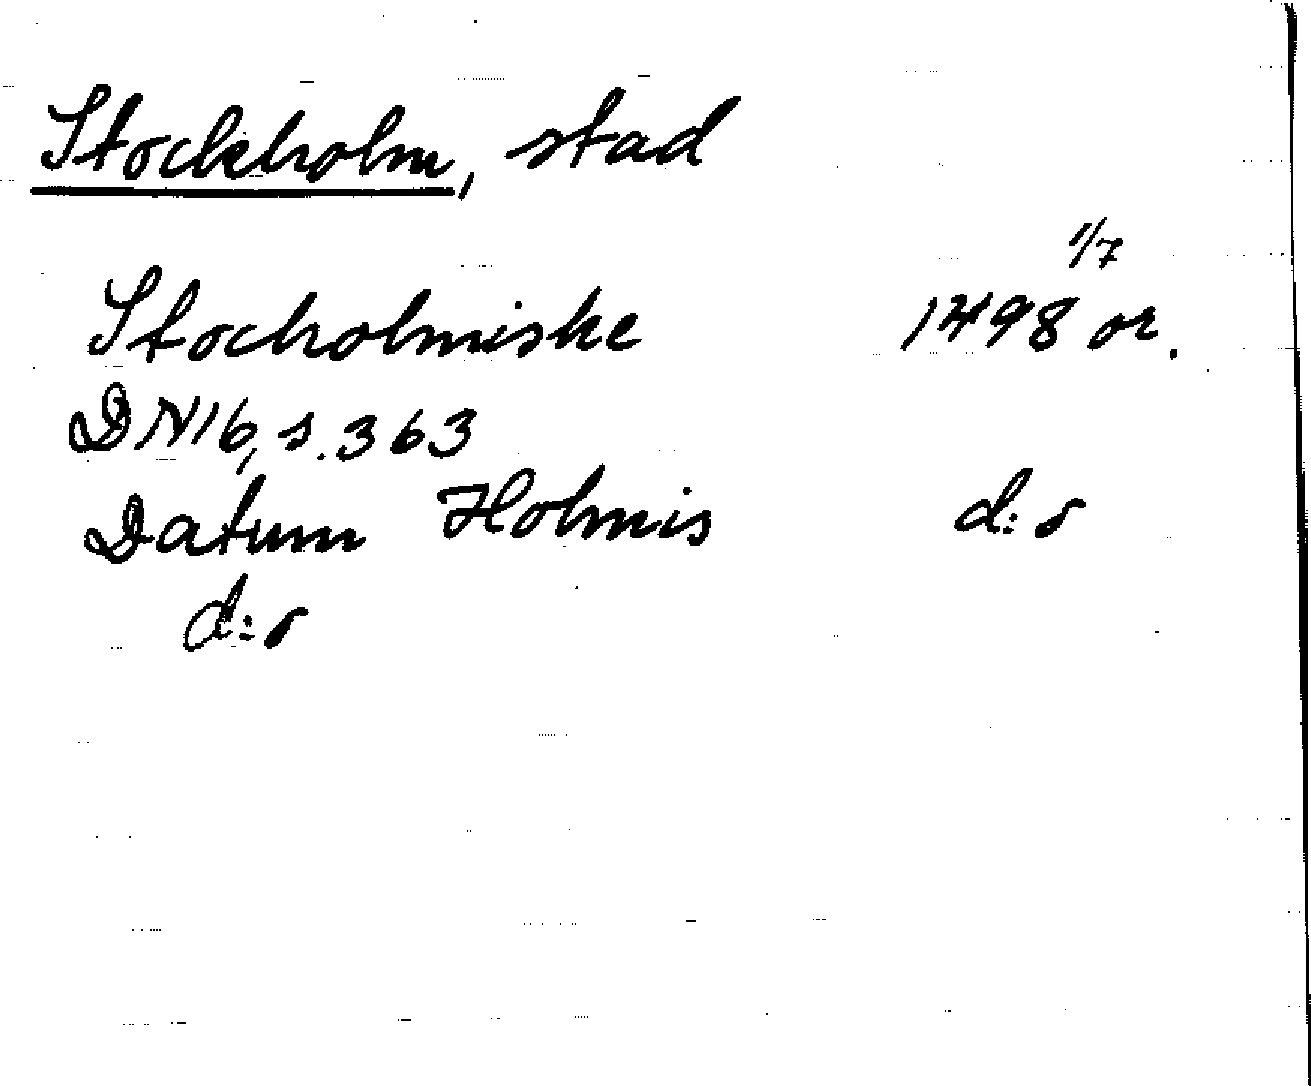 Stockholm, stad
1/7
Stocholmiske 1498 or.
DN16, s. 363
Datum Holmis d:o
d:o